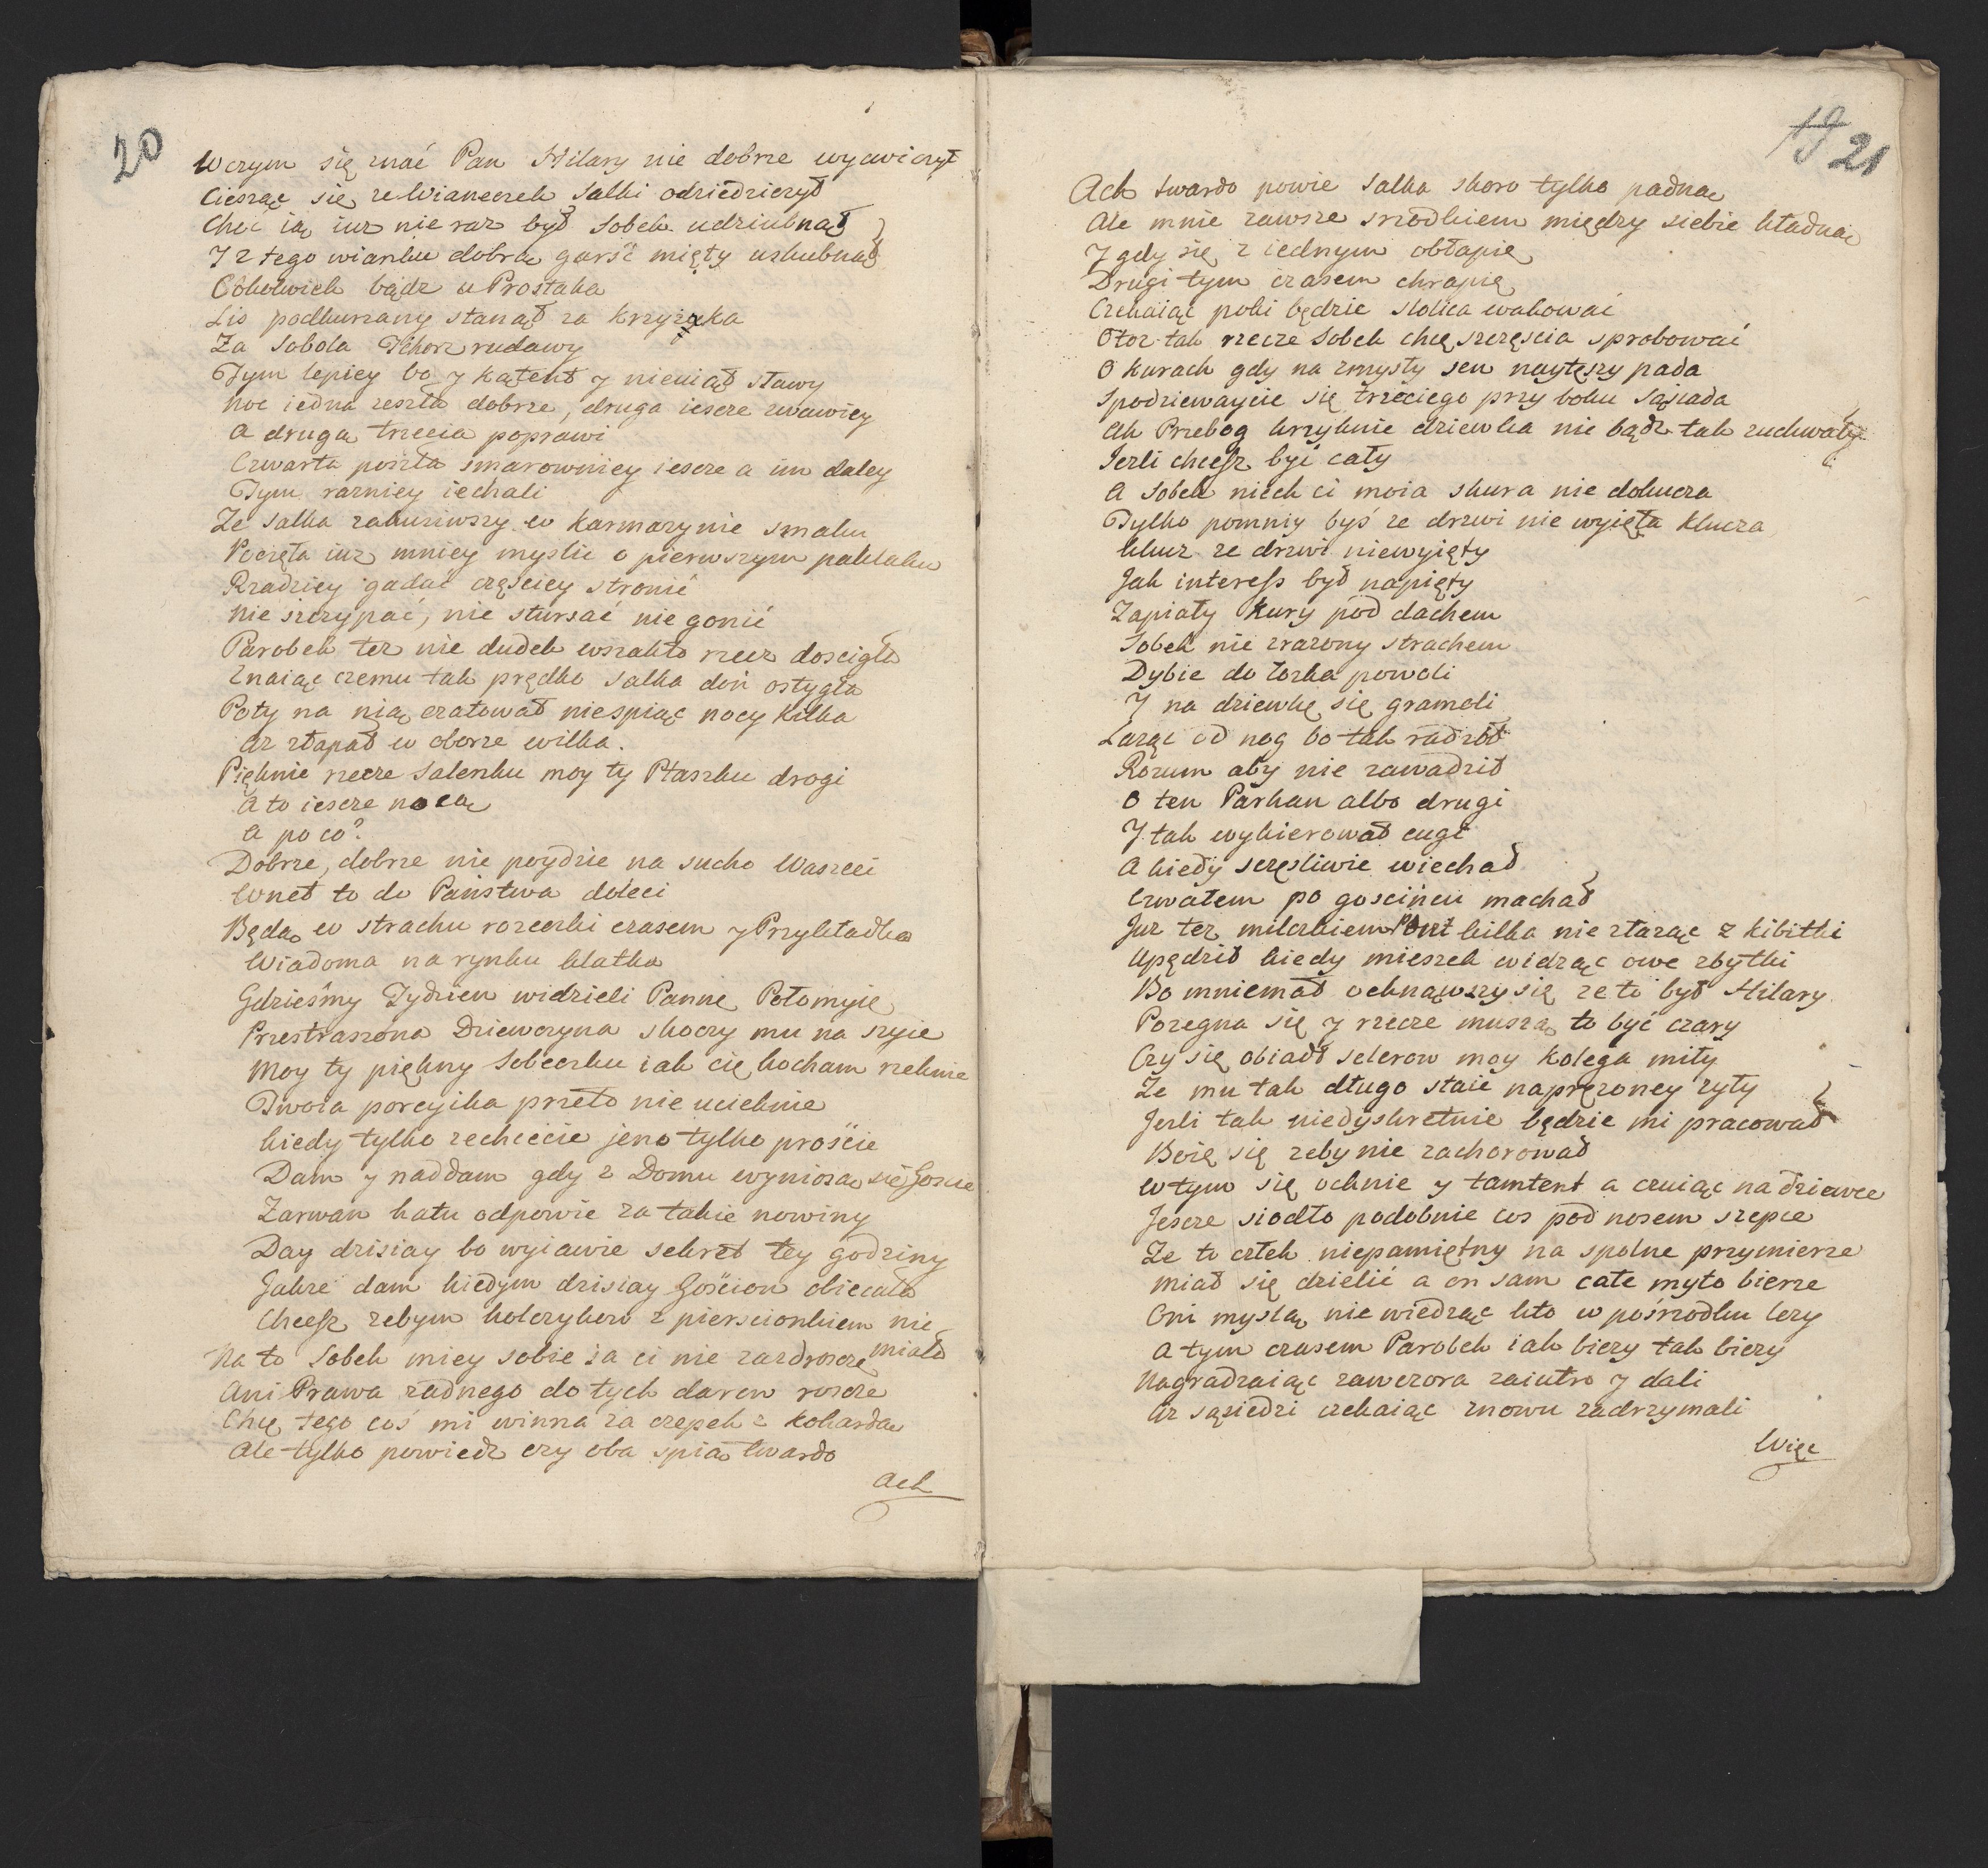 20
Wczym się znać Pan Hilary nie dobrze wycwiczył
Ciesząc się ze Wianeczek Salki odziedziczył
Choć ią iuz nie raz był Sobek udziubnął
Y z tego wianku dobrą garść mięty uskubnął
Cokolwiek bądz u Prostaka
Lis podkurzany stanął za krzyżaka
Za Sobola Tchorz rudawy
Tym lepiey bo y kątent y nieuiął sławy
Noc iedna zeszła dobrze, druga iescze zwawiey
A drugą trzecia poprawi
Czwarta poszła smarowniey iescze a im daley
Tym razniey iechali
Ze Salka zakusiwszy w karmazynie smaku
Poczęła iuz mniey myslić o pierwszym paklaku
Rzadziey gadać częsciey stronić
Nie szczypać, nie stursać nie gonić
Parobek tez nie dudek wszakto rzecz doscigła
Znaiąc czemu tak prędko Salka doń ostygła
Poty na nią czatował niespiąc nocy kilka
Az złapał w oborze wilka.
Pięknie rzecze Saleczku moy ty Ptaszku drogi
A to iescze nocą
A po co?
Dobrze, dobrze nie poydzie na sucho Waszeci
Wnet to do Państwa doleci
Będą w strachu rozeczki czasem y Przykładka
Wiadoma na rynku klatka
Gdzieśmy Tydzien widzieli Pannę Potomyię
Przestraszona Dziewczyna skoczy mu na szyie
Moy ty piękny Sobeczku iak cię kocham rzeknie
Twoia porcyika przeto nie ucieknie
kiedy tylko zechcecie jeno tylko prościе
Dam y naddam gdy z Domu wyniosą się Goscie
Zarwan katu odpowie za takie nowiny
Day dzisiay bo wyiawie sekret tey godziny
Jakze dam kiedym dzisiay Gościom obiecała
Chcesz zebym kolczykow z pierscionkiem nie miała
Na to Sobek miey sobie ia ci nie zazdroszczę
Ani Prawa zadnego do tych darow roszczę
Chcę tego coś mi winna za czepek z kokardą
Ale tylko powiedz czy oba spią twardo
Ach
19 21
Ach twardo powie Salka skoro tylko padną
Ale mnie zawsze srzodkiem między siebie kładną
Y gdy się z iednym obłapię
Drugi tym czasem chrapię
Czekaiąc poki będzie stolica wakować
Otoz tak rzecze Sobek chcę szczęscia sprobować
O kurach gdy na zmysły sen naytęszy pada
Spodziewaycie się trzeciego przy boku Sąsiada
Ah Przebog krzyknie dziewka nie bądz tak zuchwały
Jezli chcesz być cały
A Sobek niech ci moia skura nie dokucza
Tylko pomniy byś ze drzwi nie wyięła klucza
klucz ze drzwi niewyięty
Jak interess był napięty
Zapiały kury pod dachem
Sobek nie zrazony strachem
Dybie do łozka powoli
Y na dziewkę się gramoli
Laząc od nog bo tak radził
Rozum aby nie zawadził
O ten Parkan albo drugi
Y tak wykierował cugi
A kiedy sczęsliwie wiechał
Czwałem po gościńcu machał
Juz tez milczkiem Poczt kilka nie złaząc z kibitki
Upędził kiedy mieszek widząc owe zbytki
Bo mniemał ocknąwszy się ze to był Hilary
Pozegna się y rzecze muszą to być czary
Czy się obiadł selerow moy kolega miły
Ze mu tak długo staie naprężoney zyły
Jezli tak niedyskretnie będzie mi pracował
Boię się zeby nie zachorował
W tym się ocknie y tamtent a czuiąc na dziewce
Jescze siodło podobnie cos pod nosem szepce
Ze to człek niepamiętny na spolne przymierze
Miał się dzielić a on sam całe myto bierze
Oni myslą nie wiedząc kto w pośrzodku lezy
A tym czasem Parobek iak biezy tak biezy
Nagradzaiąc zawczora zaiutro y dali
Az sąsiedzi czekaiąc znowu zadrzymali
Więc